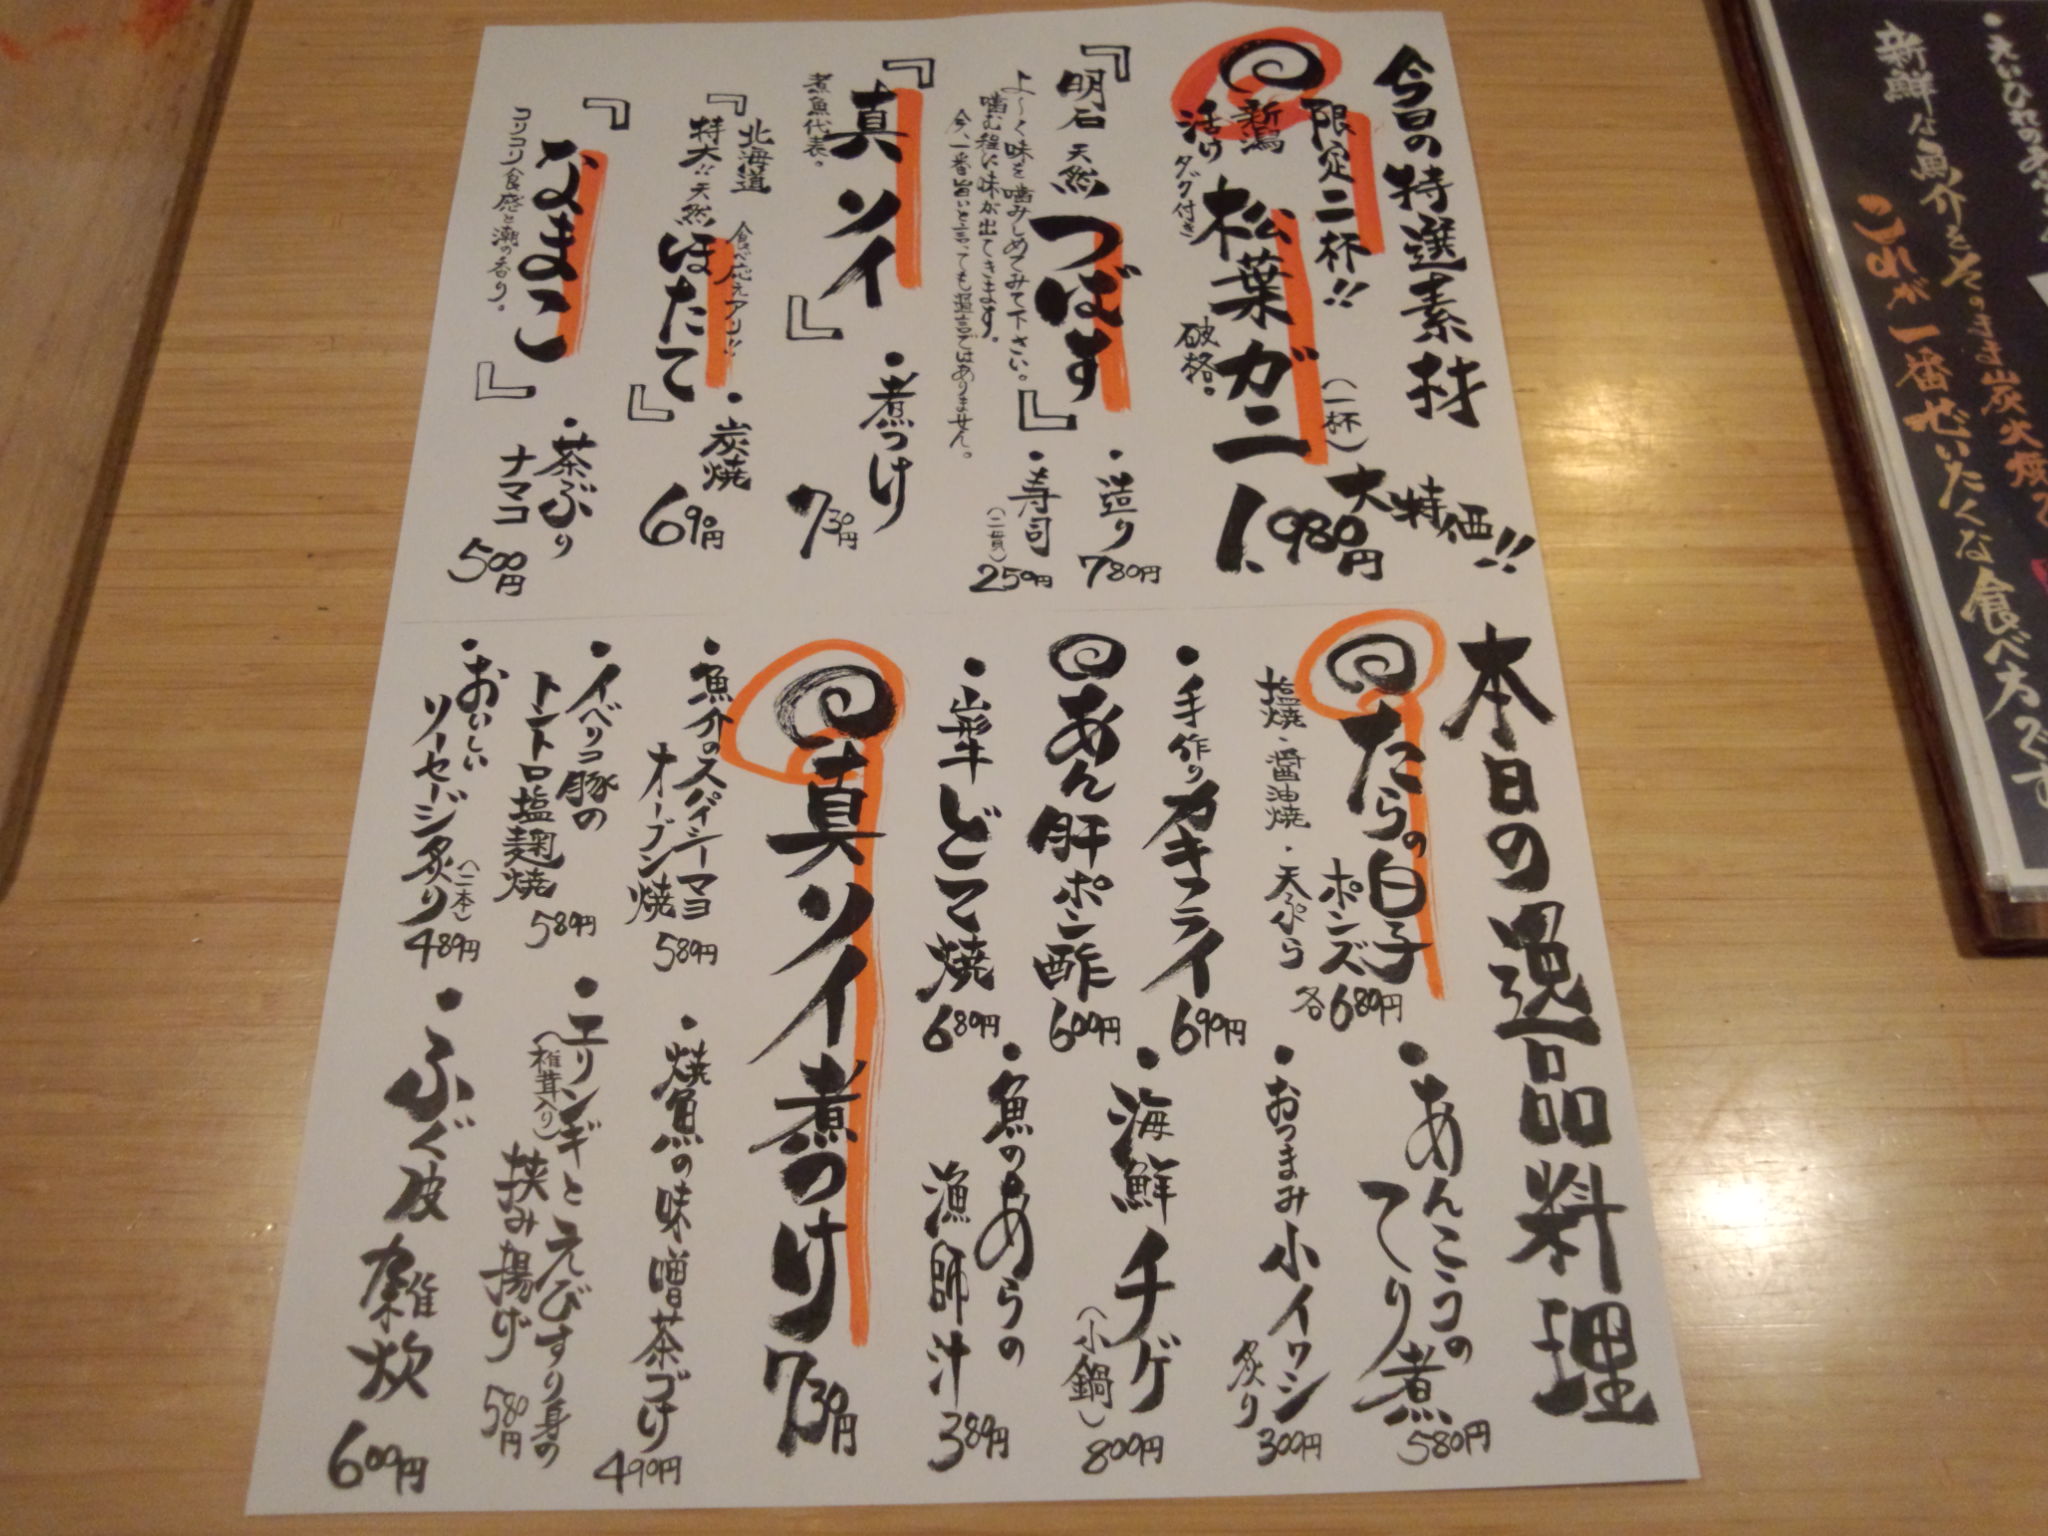 今日の特選素材
限定二杯!!
新潟
活け 松葉ガニ
タグ付き
破格。
(一杯)
大特価!!
1,980円
『明石 天然 つばす』
よ〜く味を噛みしめてみて下さい。
噛む程に味が出てきます。
今、一番旨いと言っても過言ではありません。
・造り
780円
・寿司
(二貫)
250円
『真ソイ』
煮魚代表。
・煮つけ
730円
『北海道
特大!! 天然 ほたて』
食べ応えアリ!!
・炭焼
690円
『なまこ』
コリコリ食感と潮の香り。
・茶ぶり
ナマコ
500円
本日の逸品料理
たらの白子
ポンズ
塩焼・醤油焼・天ぷら
各680円
・手作りカキフライ
690円
あん肝ポン酢
600円
・山形牛どて焼
680円
・あんこうの
てり煮
580円
・おつまみ小イワシ
炙り
300円
・海鮮チゲ
(小鍋)
800円
・魚のあらの
漁師汁
380円
真ソイ煮つけ
730円
・魚介のスパイシーマヨ
オーブン焼
580円
・イベリコ豚の
トントロ塩麹焼
580円
・おいしい
ソーセージ炙り
(二本)
480円
・焼魚の味噌茶づけ
490円
・エリンギとえびすり身の
(椎茸入り)
挟み揚げ
580円
・ふぐ皮雑炊
600円
新鮮な魚介をそのまま炭火焼で
これが一番ぜいたくな食べ方です